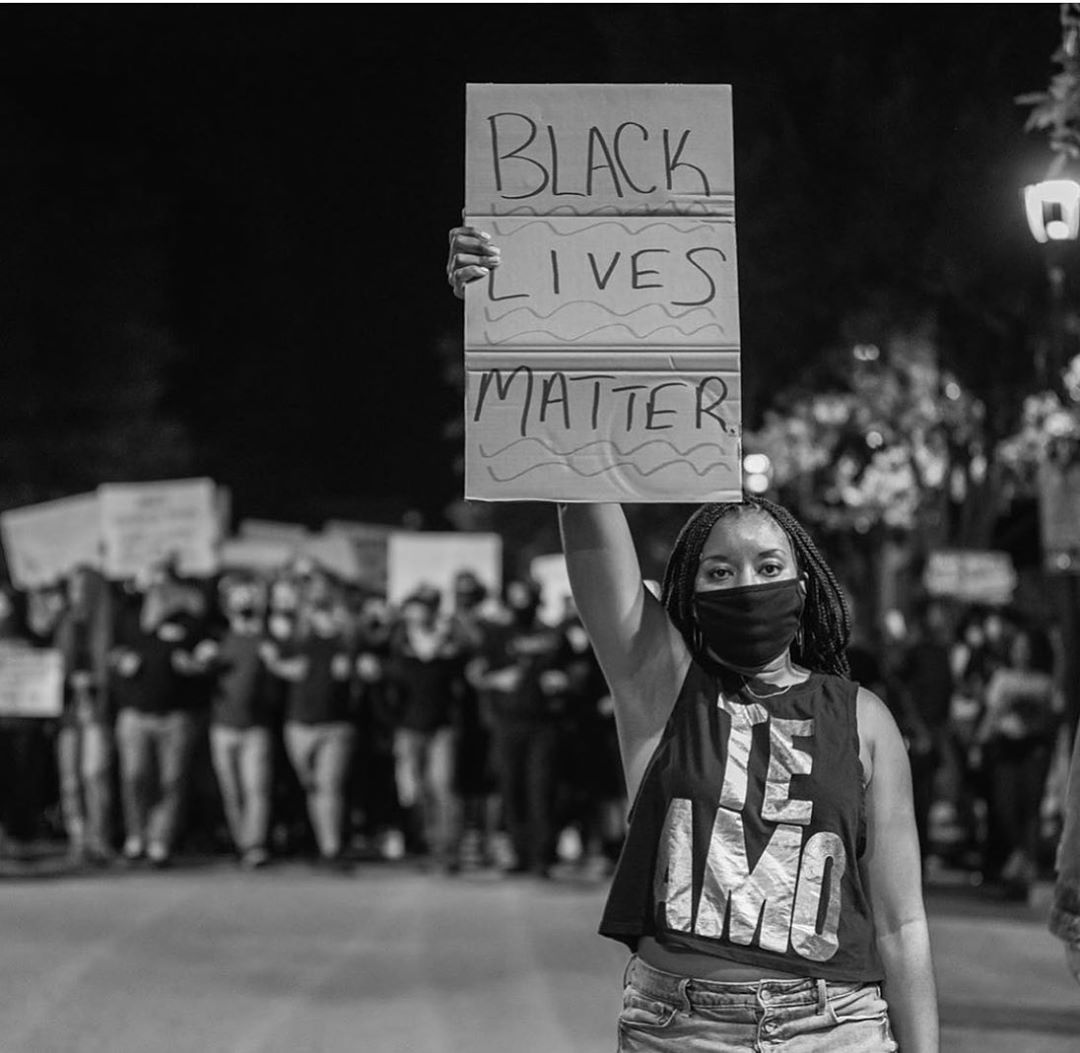 BLACK
LIVES
MATTER.
TE
AMO